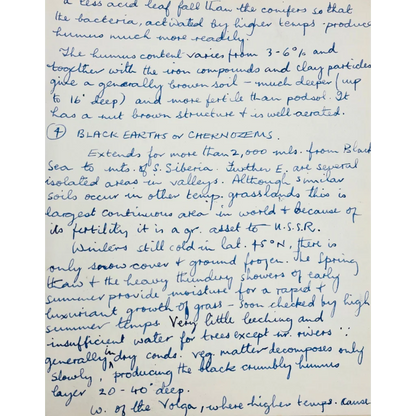 a less acid leaf fall than the conifers so that
the bacteria, activated by higher temps. produce
humus much more readily.
The humus content varies from 3-6% and
together with the iron compounds and clay particles
give a generally brown soil - much deeper (up
to 16" deep) and more fertile than podsol. It
has a nut brown structure + is well aerated.
④ BLACK EARTHS or CHERNOZEMS.
Extends for more than 2,000 mls. from Black
Sea to mts. of S. Siberia. Further E. are several
isolated areas in valleys. Although similar
soils occur in other temp. grasslands this is
largest continuous area in world + because of
its fertility it is a gr. asset to U.S.S.R.
Winters still cold in lat. 45°N, there is
only snow cover + ground frozen. The Spring
thaw + the heavy thundery showers of early
summer provide moisture for a rapid +
luxuriant growth of grass - soon checked by high
summer temps. Very little leeching and
insufficient water for trees except nr. rivers ∵
generally in dry conds. veg matter decomposes only
slowly, producing the black crumbly humus
layer 20-40" deep.
W. of the Volga, where higher temps. cause